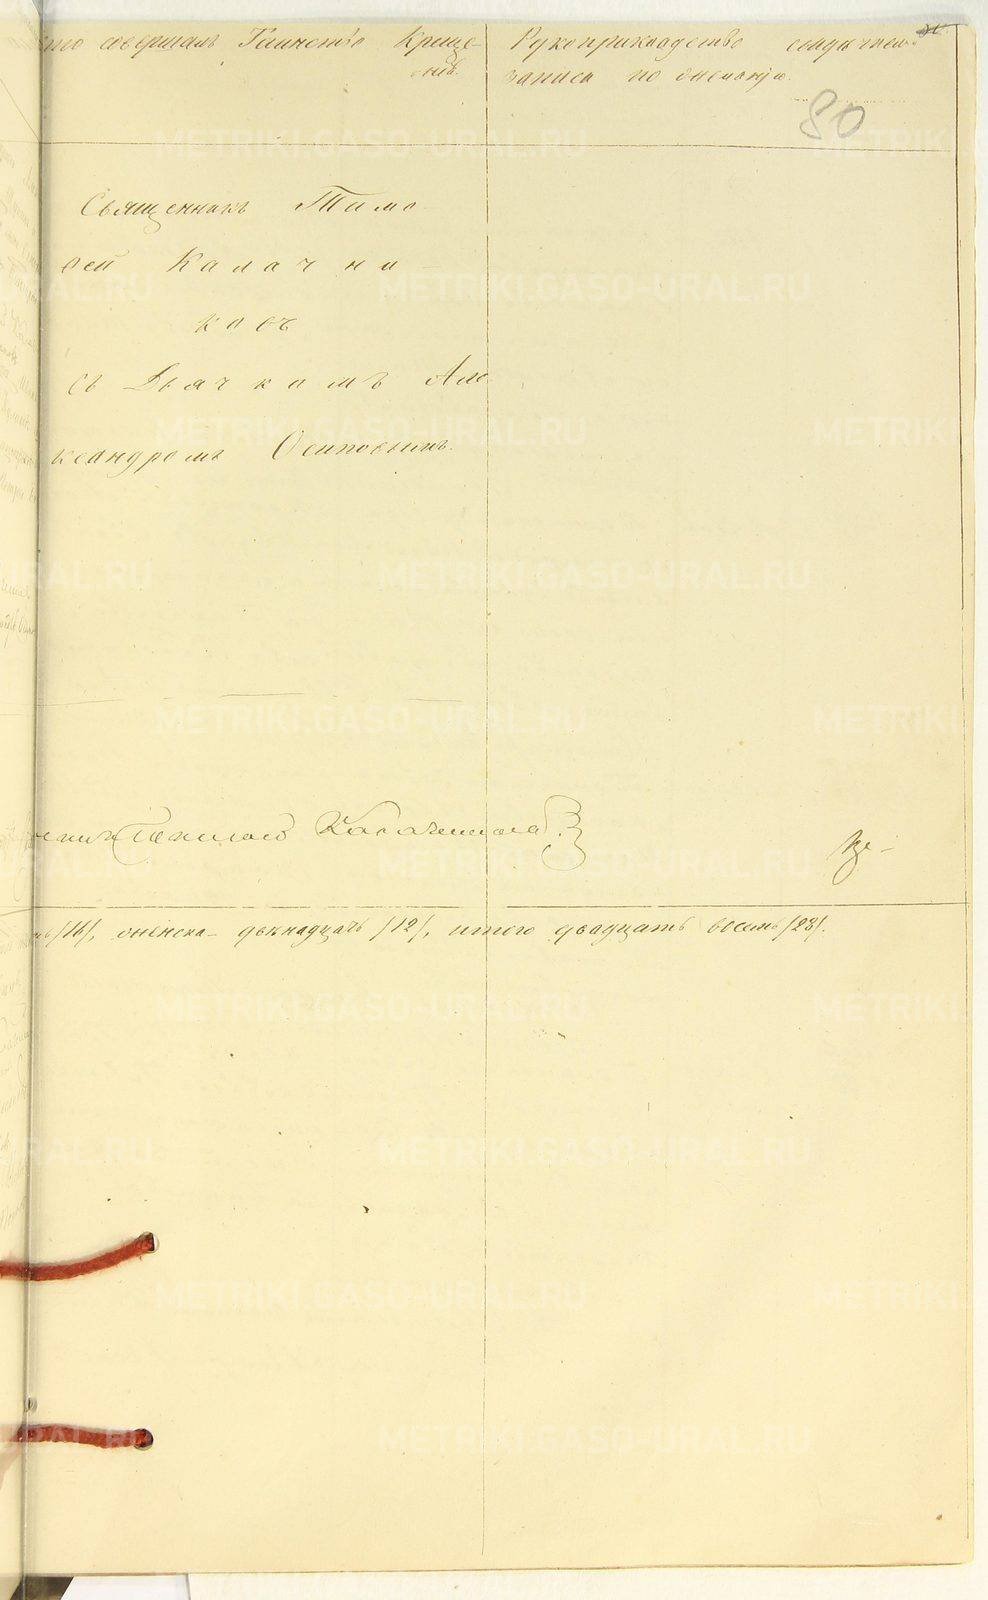 Кто совершалъ Таинство Креще-
нія.
Рукоприкладство свидѣтелей
записи по желанію.
80
Священникъ Тимо-
ѳей Калачни-
ковъ
съ Дьячкомъ Але-
ксандромъ Осиповымъ.
Калачниковъ
/16/, женска- двѣнадцать /12/, итого двадцать восемь /28/.
METRIKI.GASO-URAL.RU